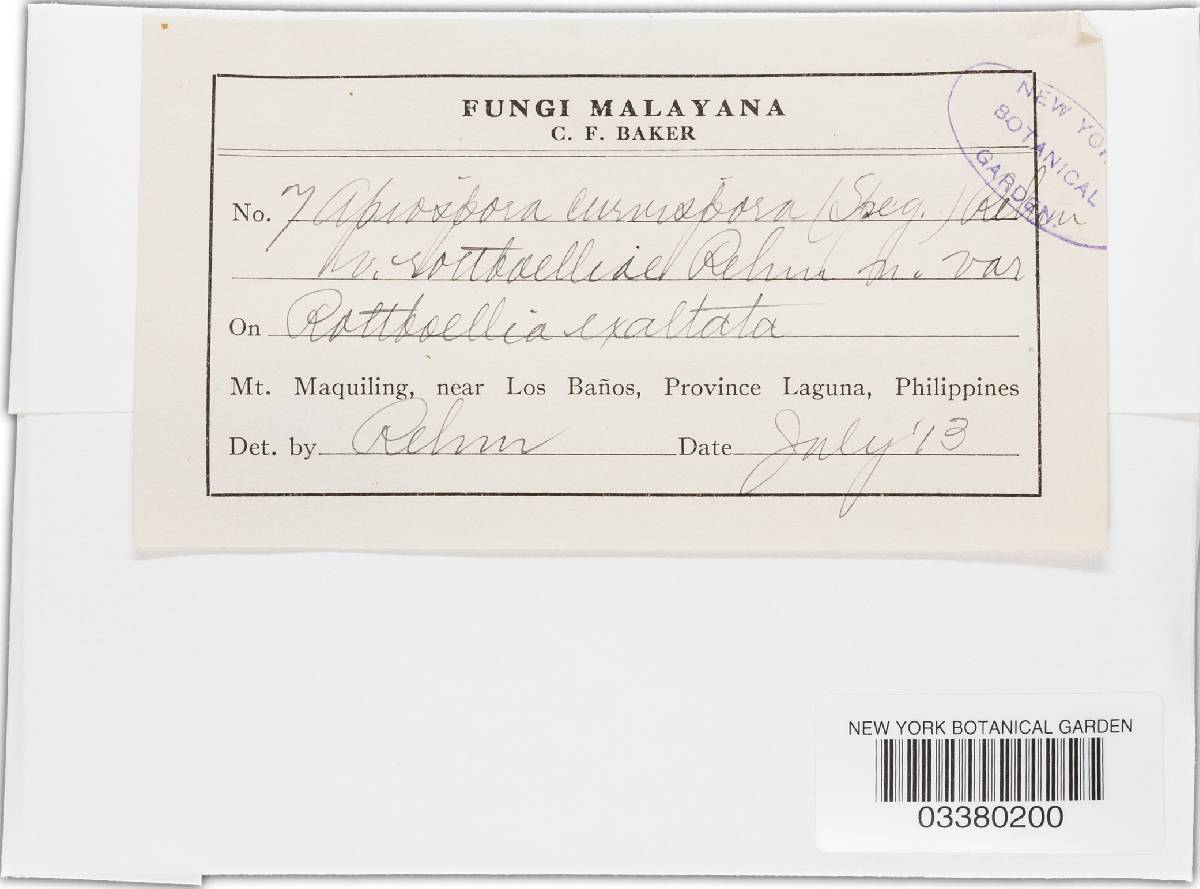 FUNGI MALAYANA
C. F. BAKER
NEW YORK
BOTANICAL
GARDEN.
No. 7 Apiospora curvispora (Speg.) Rehm
v. rottboelliae Rehm n. var
On Rottboellia exaltata
Mt. Maquiling, near Los Baños, Province Laguna, Philippines
Det. by Rehm Date July '13
NEW YORK BOTANICAL GARDEN
03380200